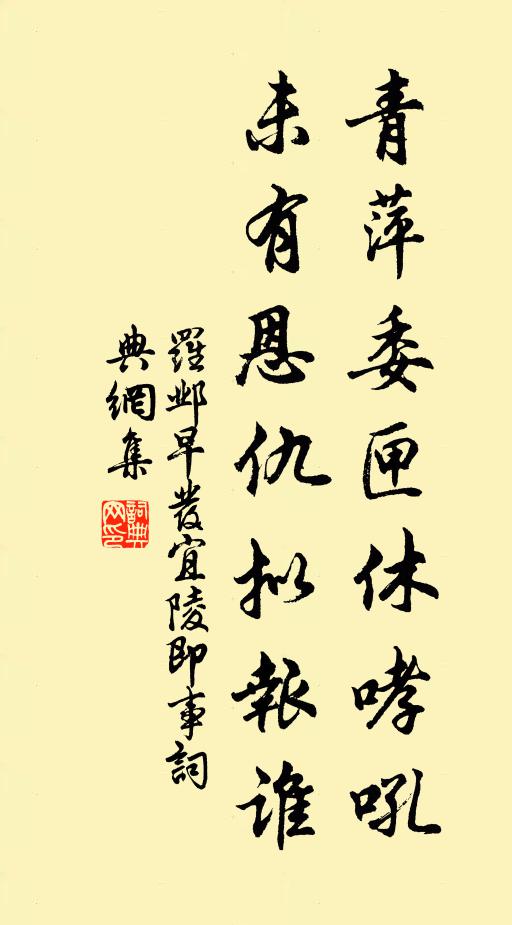 青萍委匣休哮吼
未有恩仇拟報誰
羅邺早發宜陵即事詞
典網集
詞典网印